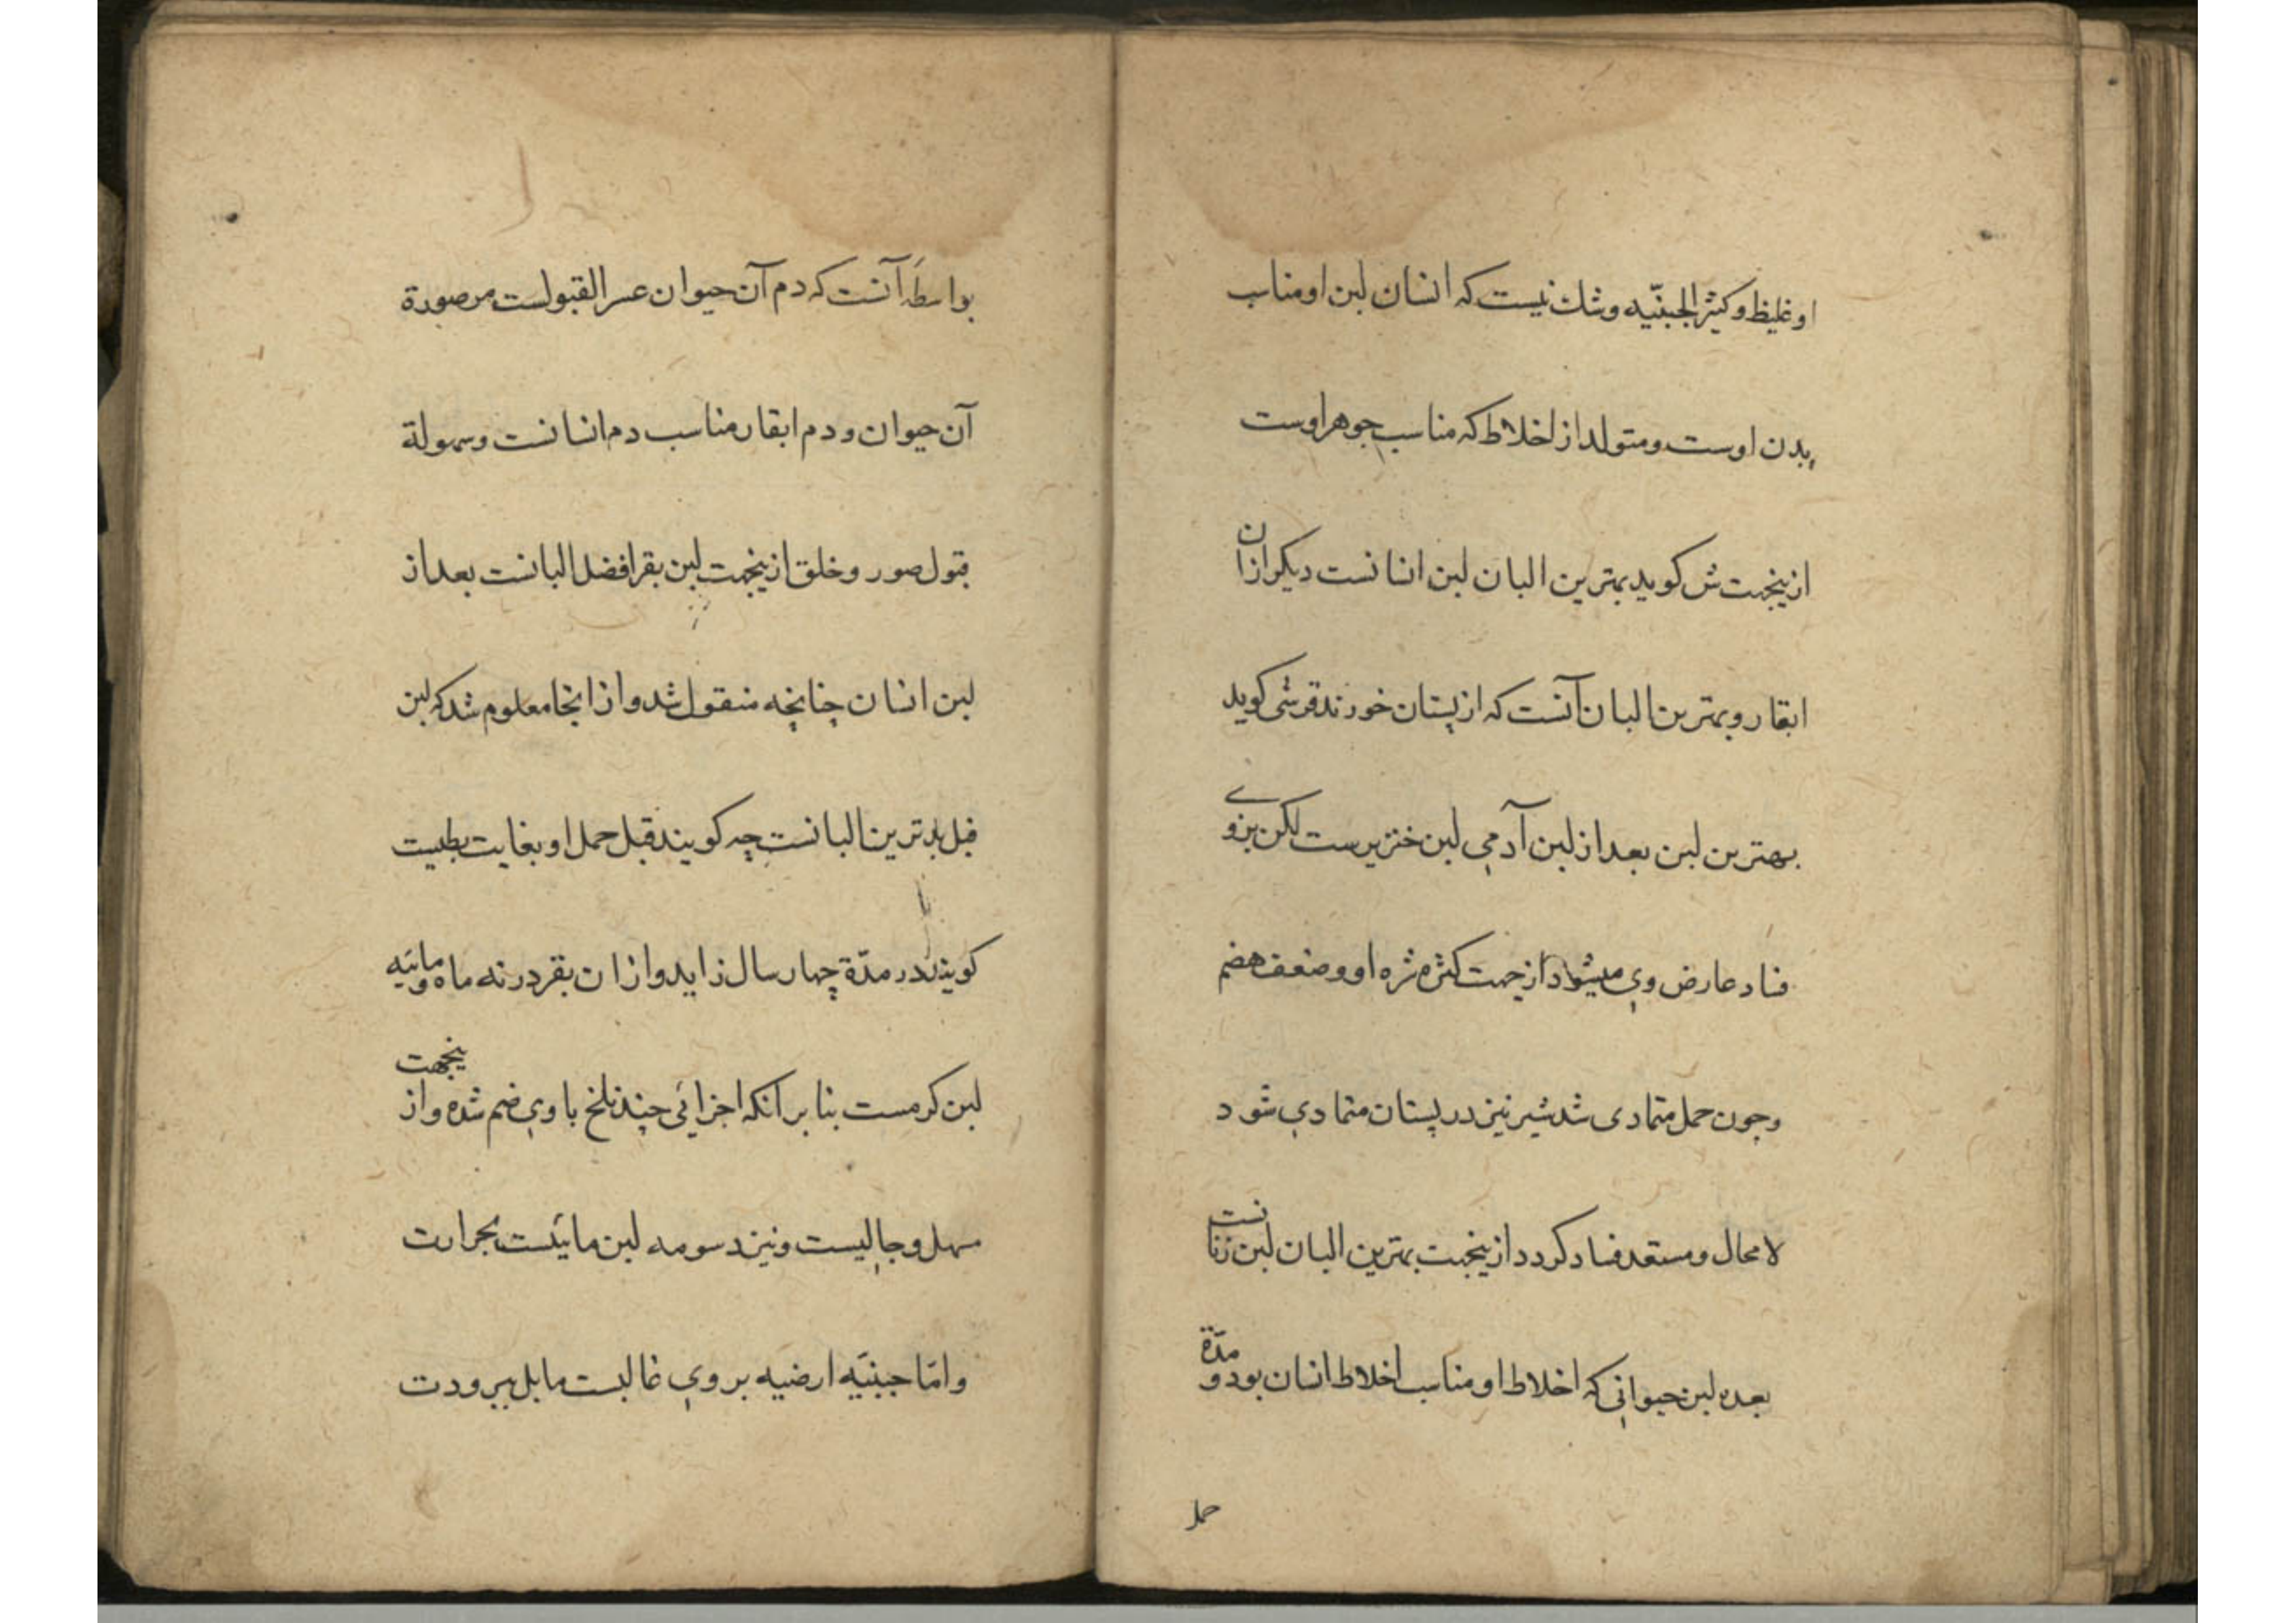 او غلیظ و کثیر الجبنیّه و شك نیست که انسان لبن او مناسب
بدن اوست و متولد از اخلاط که مناسب جوهر اوست
ازینجهت ش کوید بهترین البان لبن انسانست دیکر ازان
ابقار و بهترین البان آنست که از پستان خورند قرشی کوید
بهترین لبن بعد از لبن آدمی لبن خنزیرست لکن بزو
فساد عارض وی میشود از جهت کثرة او و ضعف هضم
وجون حمل متمادی شد شیر نیز در پستان متمادی شود
لامحال و مستعد فساد کردد ازینجهت بهترین البان لبن زنانست
بعده لبن حیوانی که اخلاط او مناسب اخلاط انسان بود و مدّة
حمل
بواسطهٔ آنست که دم آن حیوان عسر القبولست مر صورة
آن حیوان و دم ابقار مناسب دم انسانست و سهولة
قبول صور و خلق ازینجهت لبن بقر افضل البانست بعد از
لبن انسان چنانچه منقول شد و از انجا معلوم شد که لبن
فیل بدترین البانست چه کویند قبل حمل او بغایت بطیست
کویند در مدّة چهار سال زاید و ازان بقر در نه ماه و مائیّه
لبن کرمست بنا بر انکه اجزائی چند تلخ با وی ضم شده و ازینجهت
مسهل و جالیست و نیز دسومه لبن مایلست بحرارت
وامّا جبنیّه ارضیه بر وی غالبست مایل ببرودت